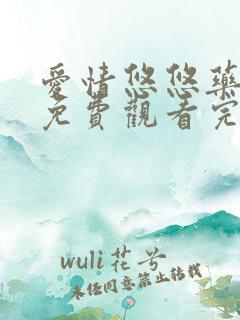 愛情悠悠藥
免費觀看完
wuli花兮
未經同意禁止轉載